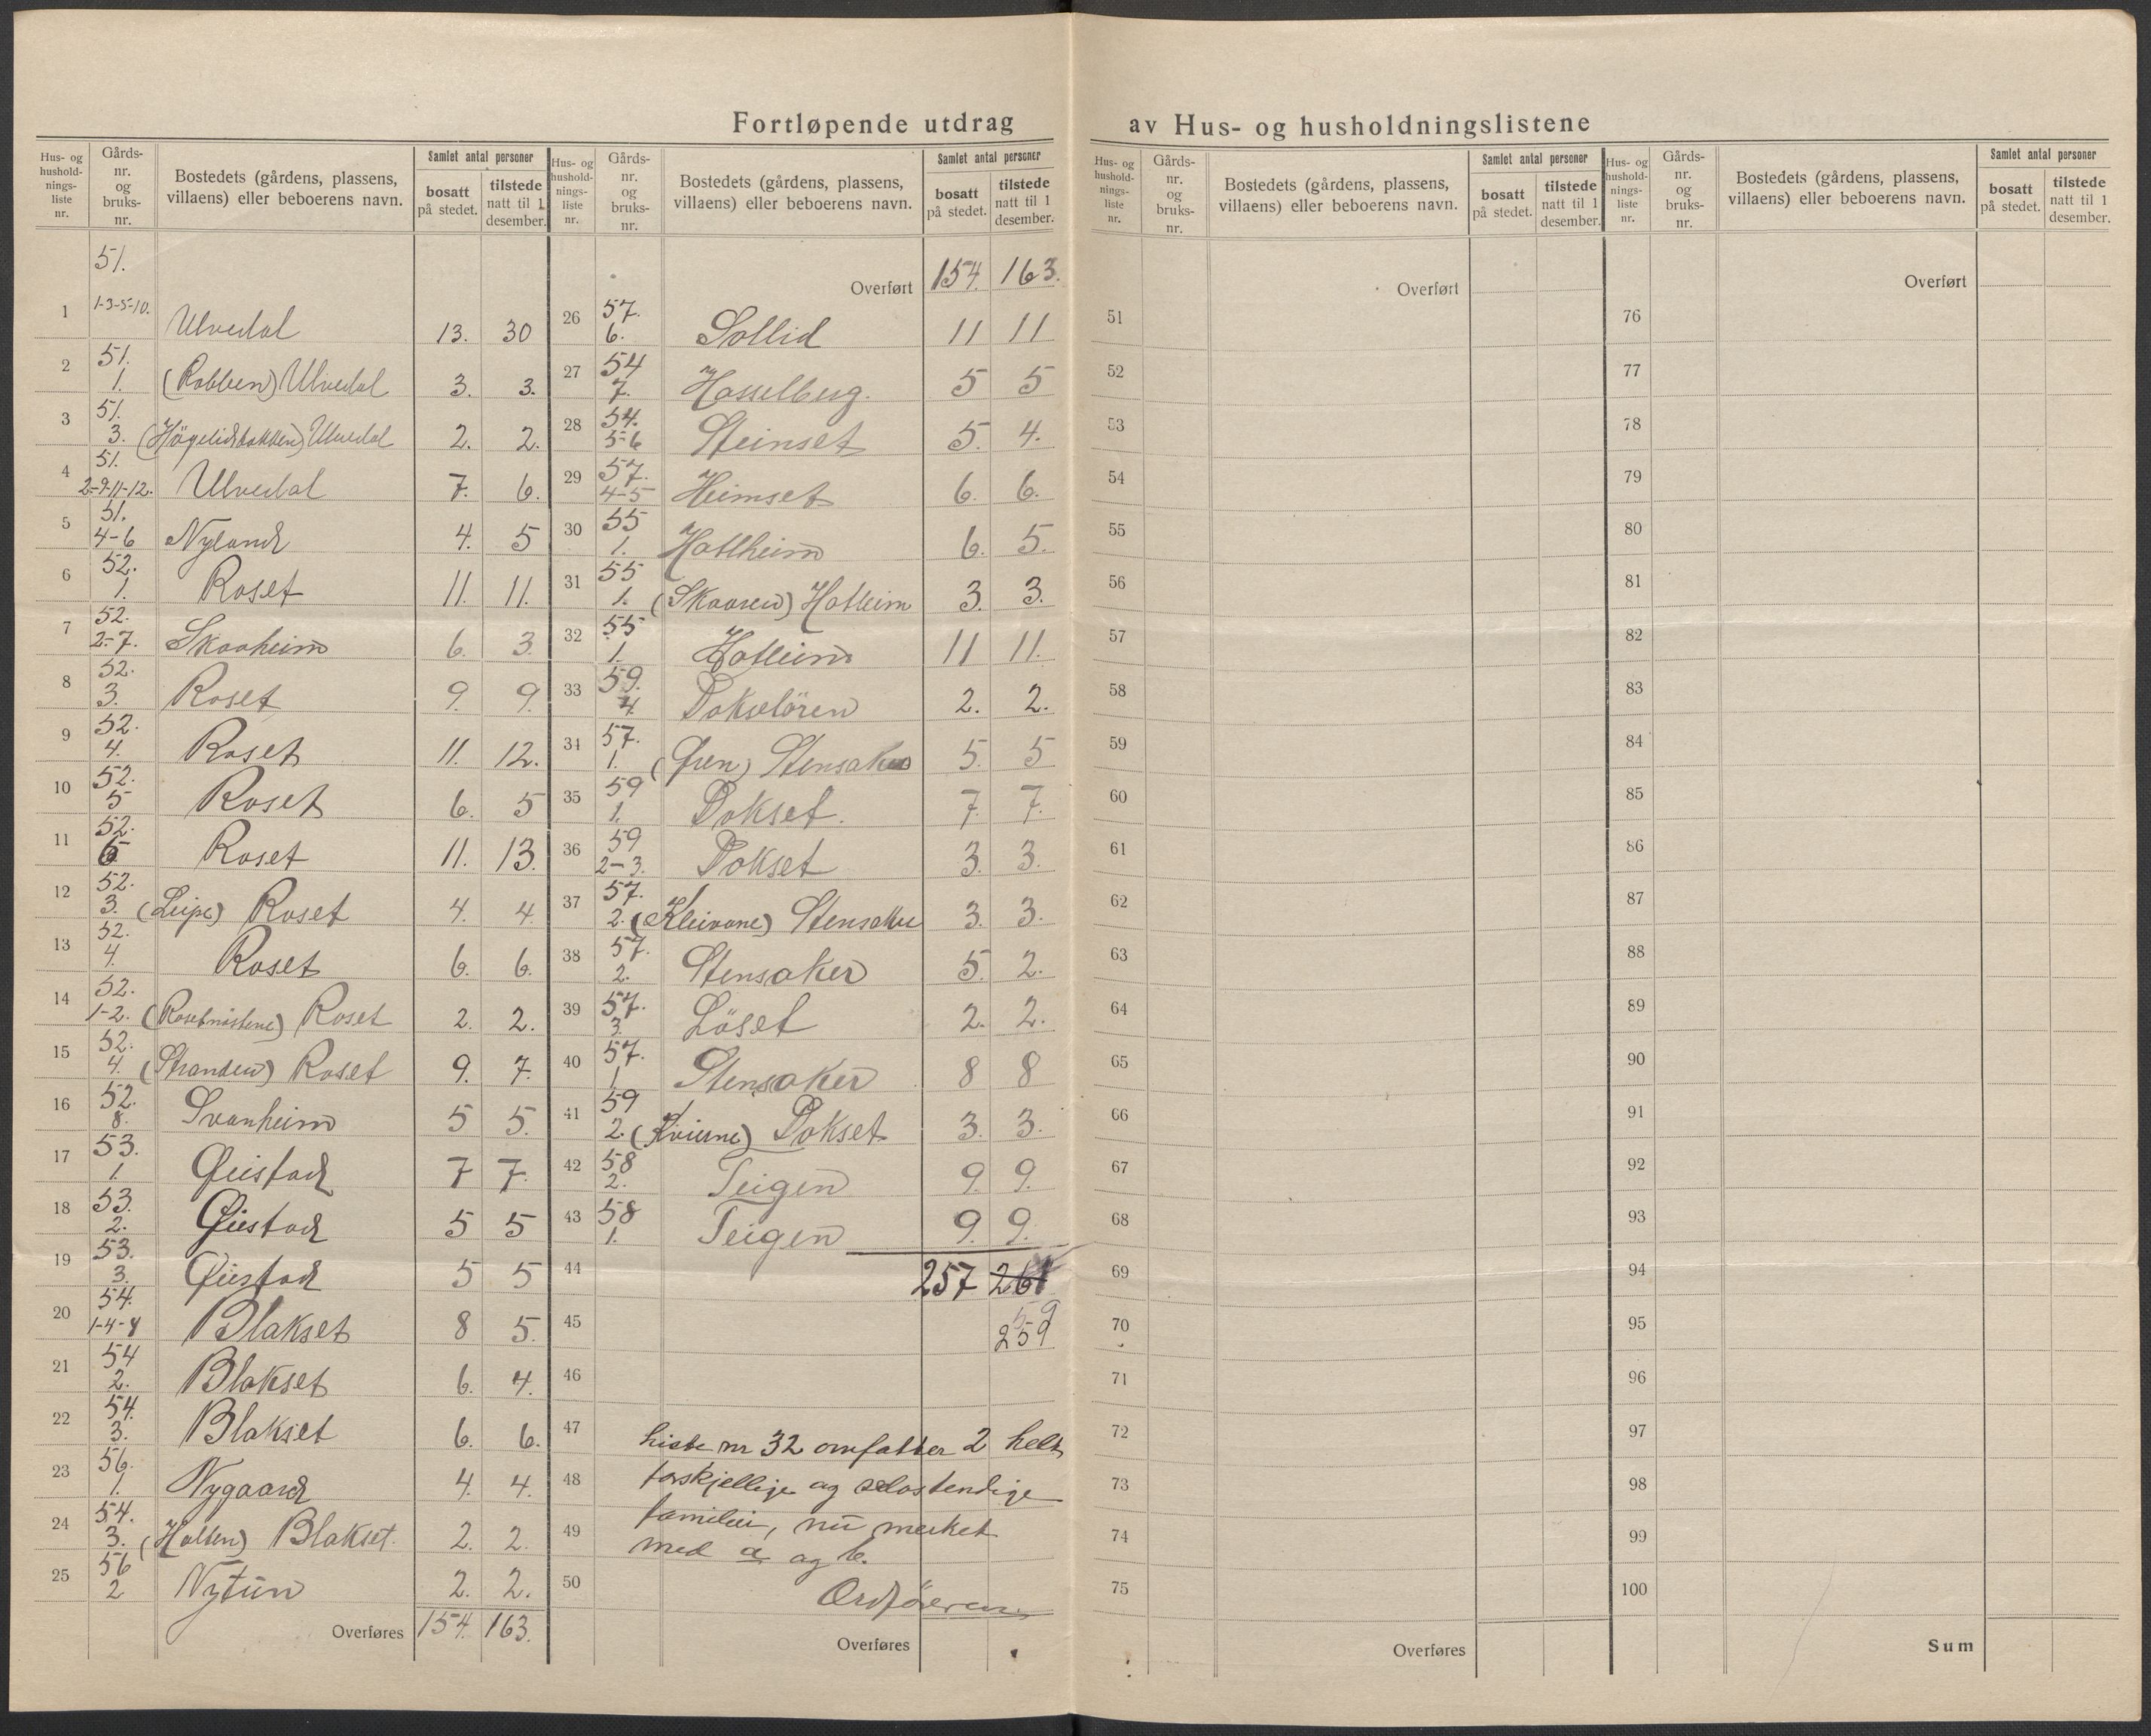 Fortløpende utdrag av Hus- og husholdningslistene
Hus- og hushold-nings-liste nr. Gårds-nr. og bruks-nr. Bostedets (gårdens, plassens, villaens) eller beboerens navn. Samlet antal personer bosatt på stedet. tilstede natt til 1 desember.
51.
1 1-3-5-10. Ulvedal 13. 30
2 51. 1. (Robben) Ulvedal 3. 3.
3 51. 3. (Högelidbakken) Ulvedal 2. 2.
4 51. 2-9-11-12. Ulvedal 7. 6.
5 51. 4-6 Nyland 4. 5
6 52. 1. Roset 11. 11.
7 52. 2-7. Skaaheim 6. 3
8 52. 3. Roset 9. 9.
9 52. 4. Roset 11. 12.
10 52. 5 Roset 6. 5
11 52. 6 Roset 11. 13.
12 52. 3. (Leipe) Roset 4. 4.
13 52. 4. Roset 6. 6.
14 52. 1-2. (Rosetnöstene) Roset 2. 2.
15 52. 4. (Stranden) Roset 9. 7.
16 52. 8. Svanheim 5 5.
17 53. 1. Geistad 7 7.
18 53. 2. Geistad 5 5
19 53. 3. Geistad 5 5
20 54. 1-4-8 Blakset 8 5.
21 54 2. Blakset 6. 4.
22 54. 3. Blakset 6. 6.
23 56. 1. Nygaard 4. 4.
24 54. 3. (Holten) Blakset. 2. 2.
25 56 2 Nytun 2. 2.
Overføres 154. 163.
Hus- og hushold-nings-liste nr. Gårds-nr. og bruks-nr. Bostedets (gårdens, plassens, villaens) eller beboerens navn. Samlet antal personer bosatt på stedet. tilstede natt til 1 desember.
Overført 154. 163.
26 57. 6. Sollid 11 11
27 54 7. Hasselberg. 5 5
28 54. 5-6 Steinset 5. 4.
29 57. 4-5 Heimset 6. 6.
30 55 1. Hatlheim 6. 5.
31 55 1. (Skaaren) Hatleim 3. 3.
32 55 1. Hatleim 11 11.
33 59. 4. Dokselören 2. 2.
34 57. 1. (Gren) Stensaker 5. 5
35 59 1. Dokset. 7. 7.
36 59 2-3. Dokset 3. 3.
37 57. 2. (Kleivane) Stensaker 3. 3.
38 57. 2. Stensaker 5. 2.
39 57. 3. Löset 2. 2.
40 57. 1. Stensaker 8 8
41 59 2. (Kvierne) Dokset 3. 3.
42 58 2. Teigen 9. 9.
43 58 1. Teigen 9. 9.
44 257 261
59
45 259
46
47 Liste nr 32 omfatter 2 helt
48 forskjellige og selvstendige
familier, nu merket
49 med a og b.
50 Ordføreren
Overføres
Hus- og hushold-nings-liste nr. Gårds-nr. og bruks-nr. Bostedets (gårdens, plassens, villaens) eller beboerens navn. Samlet antal personer bosatt på stedet. tilstede natt til 1 desember.
Overført
51
52
53
54
55
56
57
58
59
60
61
62
63
64
65
66
67
68
69
70
71
72
73
74
75
Overføres
Hus- og hushold-nings-liste nr. Gårds-nr. og bruks-nr. Bostedets (gårdens, plassens, villaens) eller beboerens navn. Samlet antal personer bosatt på stedet. tilstede natt til 1 desember.
Overført
76
77
78
79
80
81
82
83
84
85
86
87
88
89
90
91
92
93
94
95
96
97
98
99
100
Sum